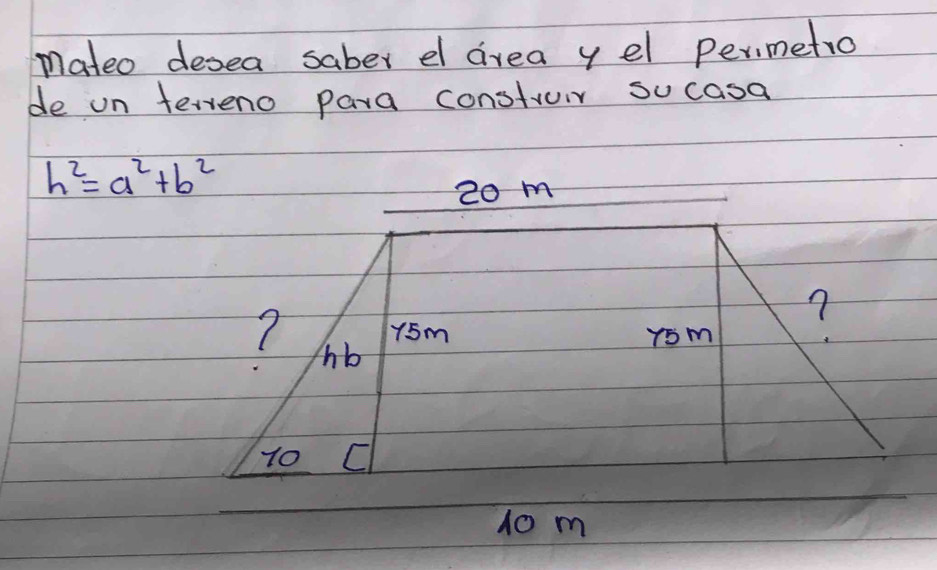 Mateo desea saber el área y el perimetro
de un terreno para construir su casa
h²=a²+b²
20 m
?
?
15m
15m
hb
10
10 m